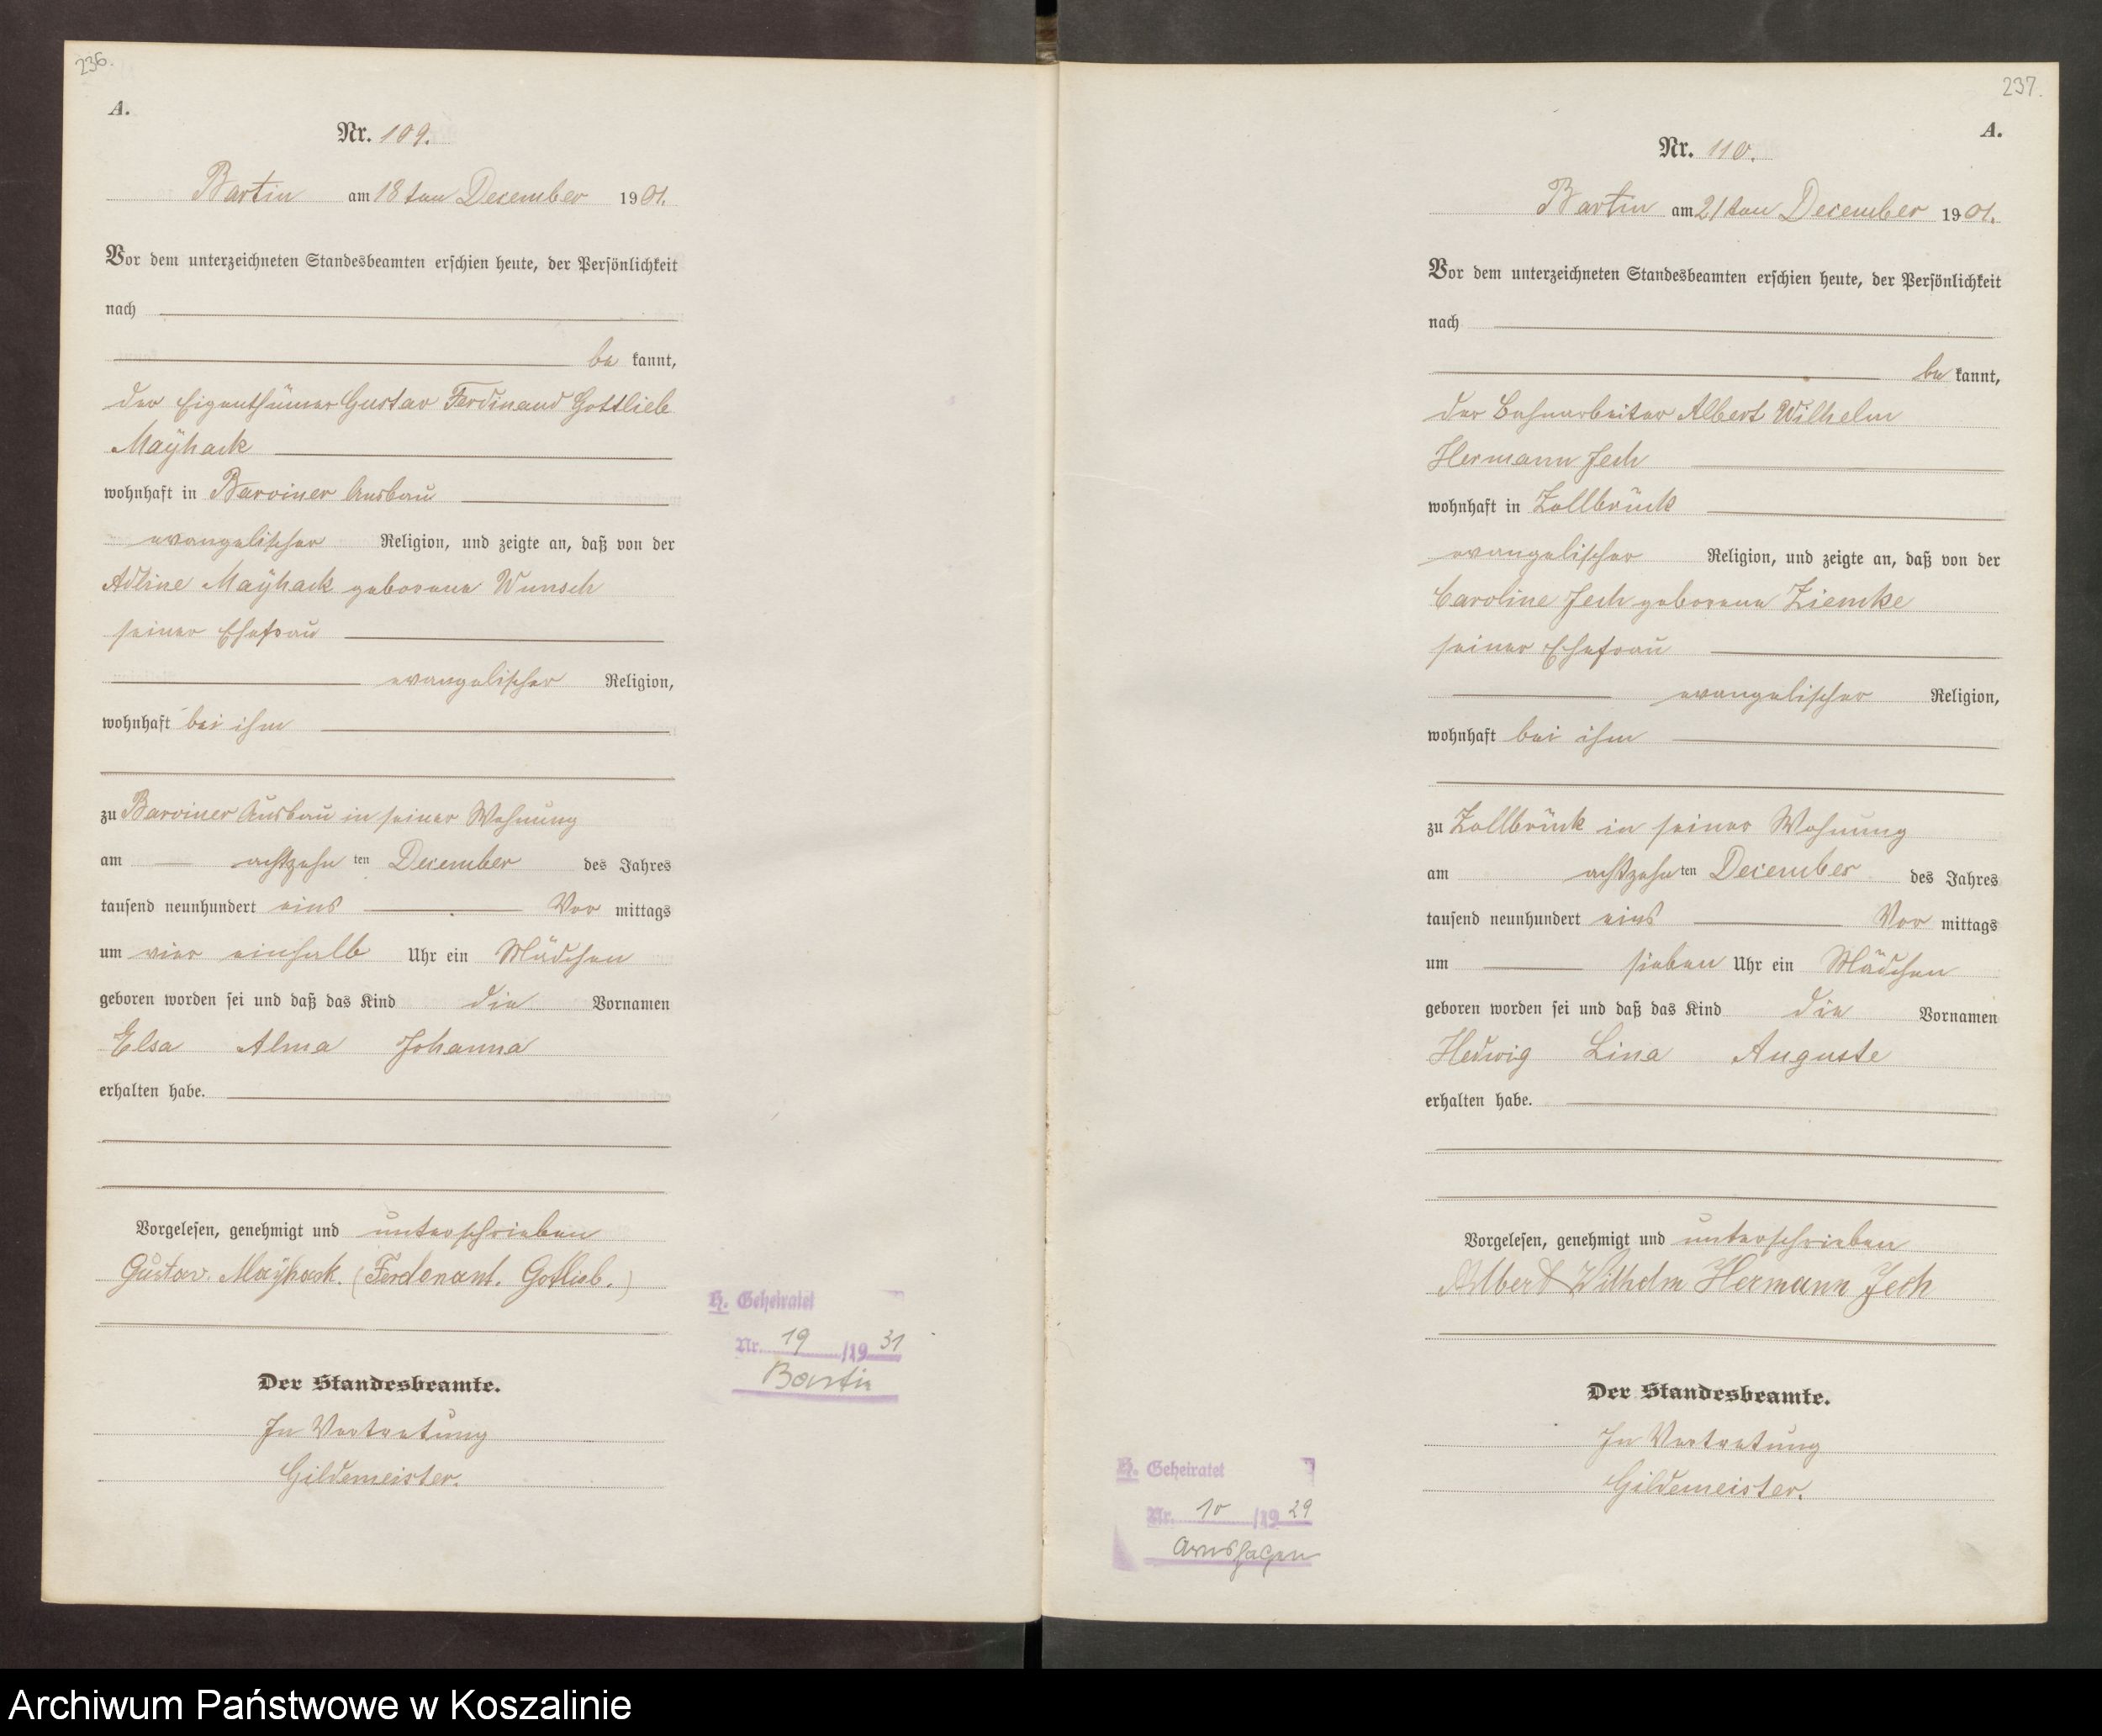 236.
A.
Nr. 109.
Bartin am 18ten December 1901.
Vor dem unterzeichneten Standesbeamten erschien heute, der Persönlichkeit
nach
be kannt,
der Eigenthümer Gustav Ferdinand Gottlieb
Mayhack
wohnhaft in Barviner Ausbau
evangelischer Religion, und zeigte an, daß von der
Adline Mayhack geborene Wunsch
seiner Ehefrau
evangelischer Religion,
wohnhaft bei ihm
zu Barviner Ausbau in seiner Wohnung
am achtzehn ten December des Jahres
tausend neunhundert eins Vor mittags
um vier einhalb Uhr ein Mädchen
geboren worden sei und daß das Kind die Vornamen
Elsa Alma Johanna
erhalten habe.
Vorgelesen, genehmigt und unterschrieben
Gustav. Mayhack. (Ferdenant. Gottlieb.)
Der Standesbeamte.
In Vertretung
Gildemeister.
H. Geheiratet
Nr. 19 /19 31
Bartin
237.
A.
Nr. 110.
Bartin am 21ten December 1901.
Vor dem unterzeichneten Standesbeamten erschien heute, der Persönlichkeit
nach
be kannt,
der Bahnarbeiter Albert Wilhelm
Hermann Jech
wohnhaft in Zollbrück
evangelischer Religion, und zeigte an, daß von der
Caroline Jech geborene Ziemke
seiner Ehefrau
evangelischer Religion,
wohnhaft bei ihm
zu Zollbrück in seiner Wohnung
am achtzehn ten December des Jahres
tausend neunhundert eins Vor mittags
um sieben Uhr ein Mädchen
geboren worden sei und daß das Kind die Vornamen
Hedwig Lina Auguste
erhalten habe.
Vorgelesen, genehmigt und unterschrieben
Albert Wilhelm Hermann Jech
Der Standesbeamte.
In Vertretung
Gildemeister.
H. Geheiratet
Nr. 10 /19 29
Arnshagen
Archiwum Państwowe w Koszalinie